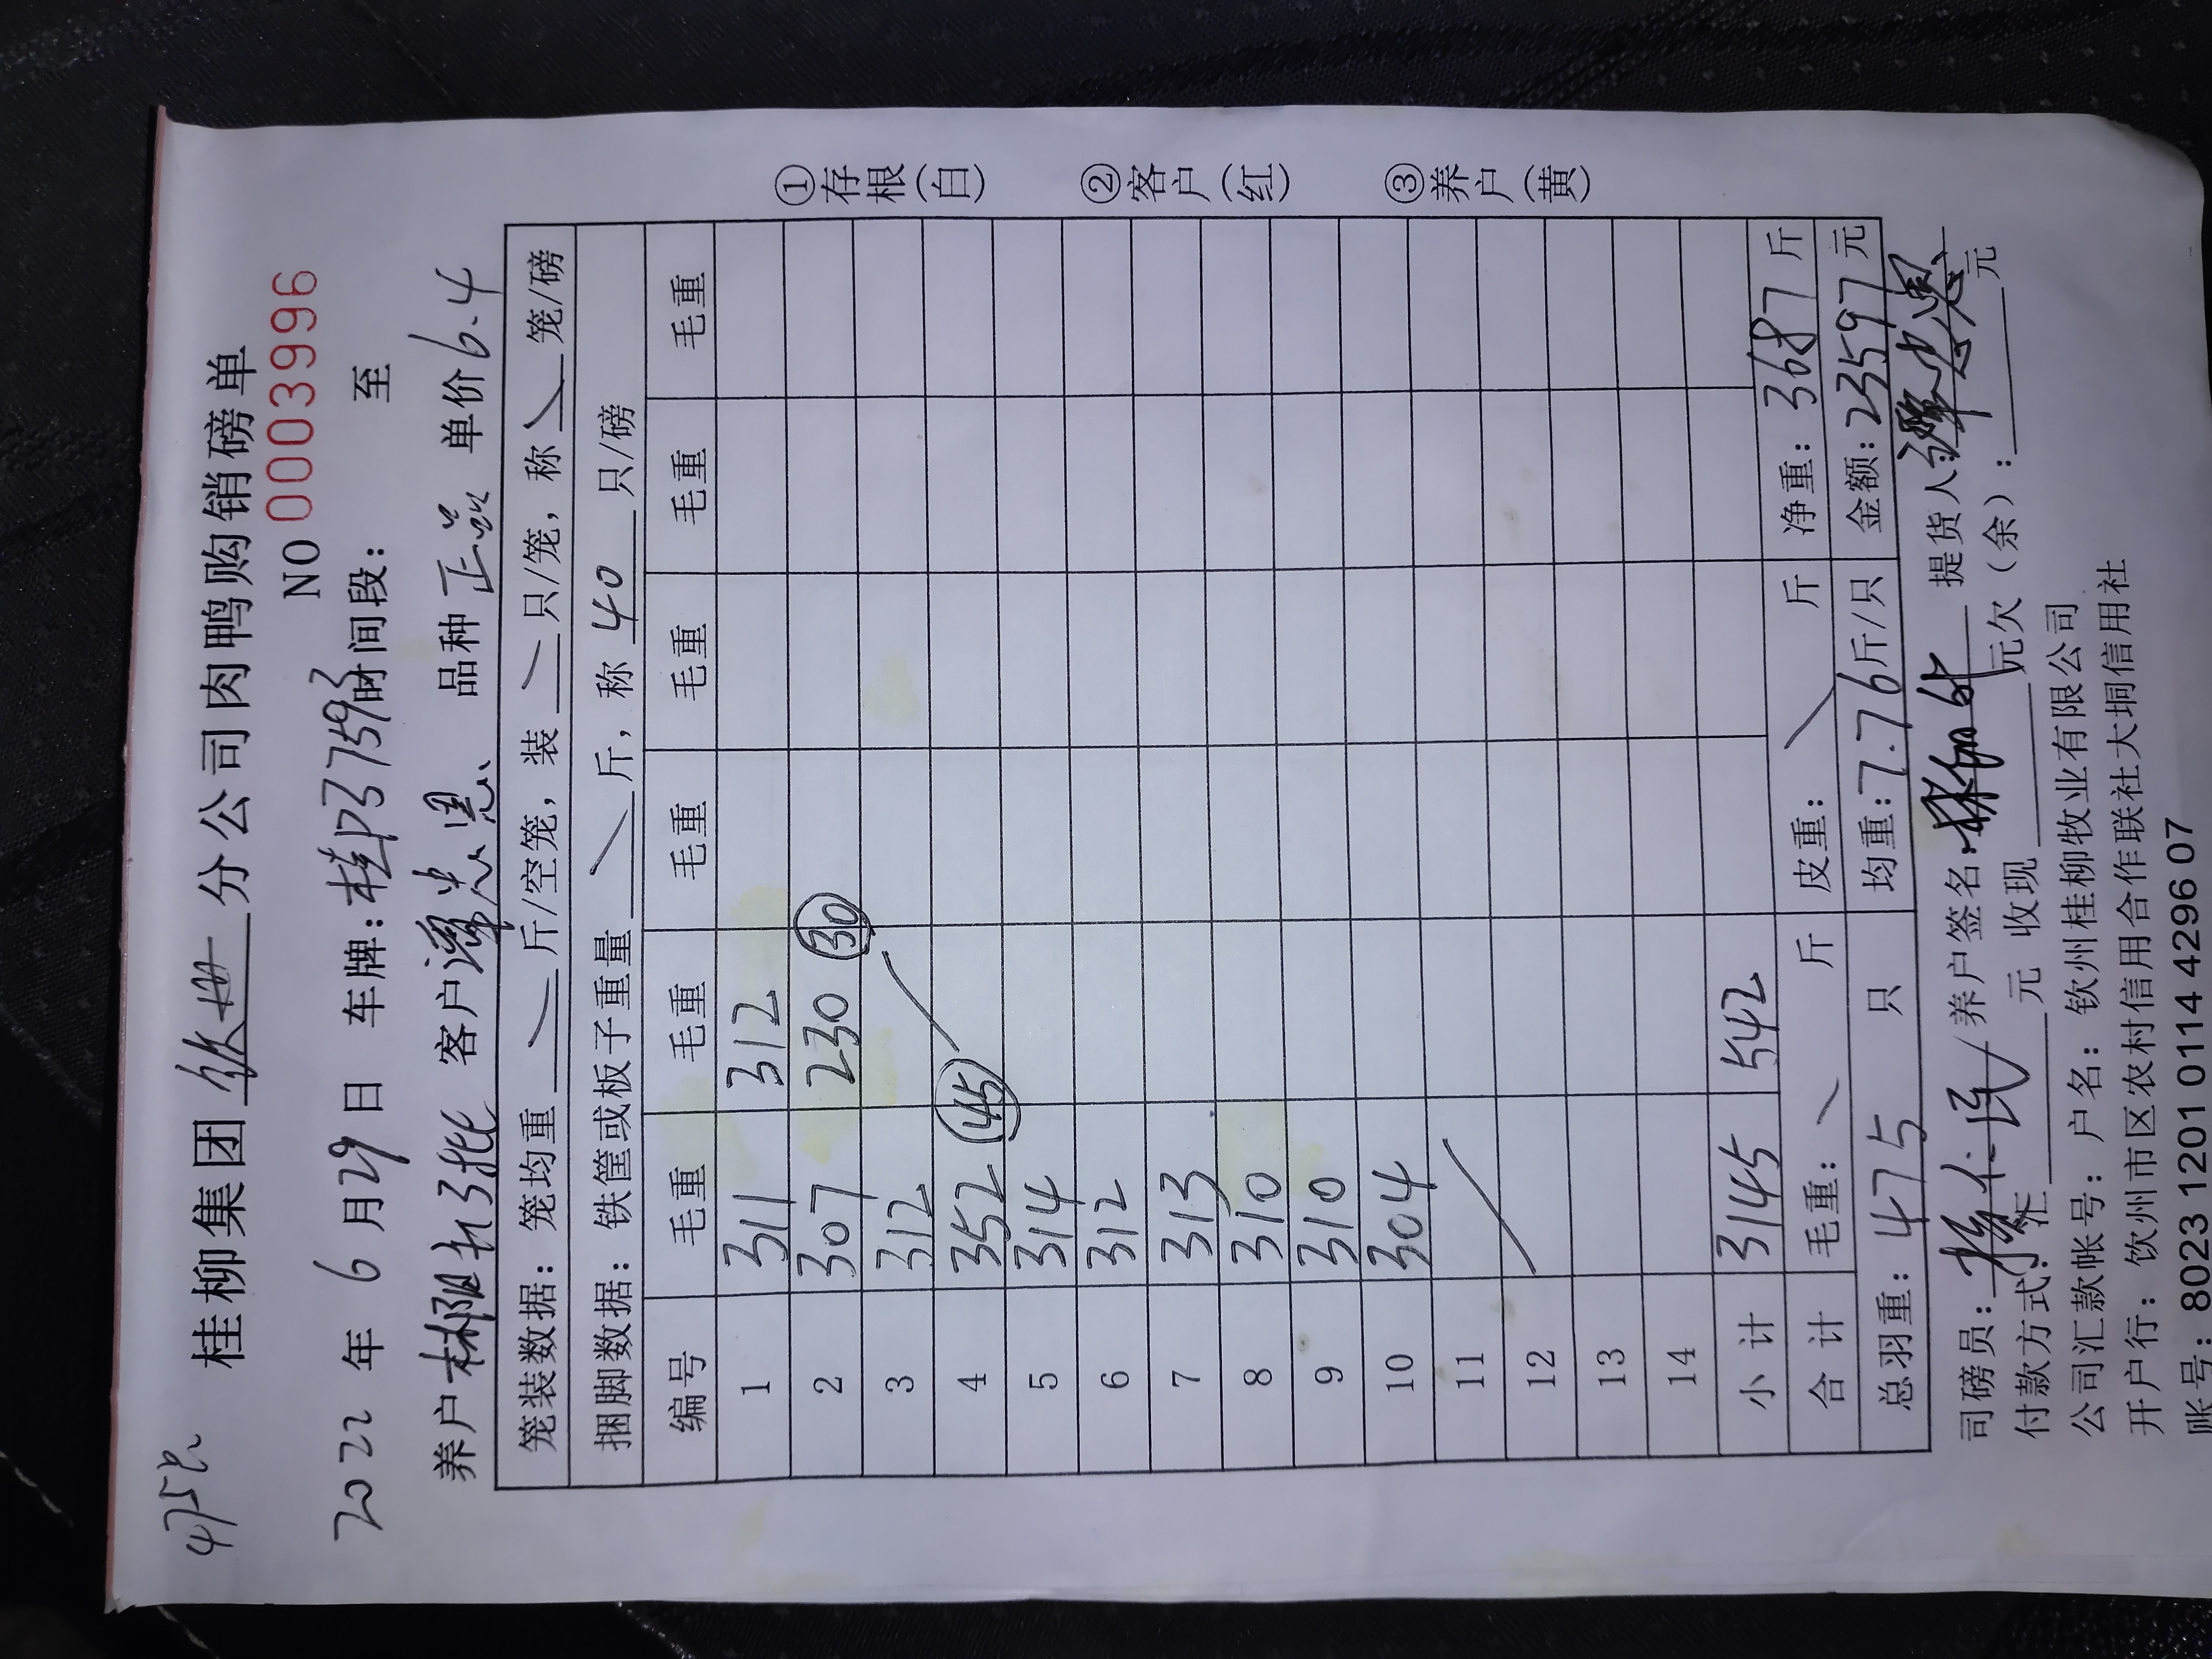 475只
桂柳集团 分公司肉鸭购销磅单
NO 0003996
2022 年 6 月 29 日 车牌:桂P37593 时间段: 至
养户 3批 客户 品种 正品 单价 6.4
笼装数据: 笼均重 斤/空笼, 装 只/笼, 称 笼/磅
捆脚数据: 铁筐或板子重量 斤, 称 40 只/磅
编号 毛重 毛重 毛重 毛重 毛重 毛重
1 311 312
2 307 230 (30)
3 312
4 352 (45)
5 314
6 312
7 313
8 310
9 310
10 304
11
12
13
14
小 计 3145 542
合 计 毛重: 斤 皮重: 斤 净重: 3687 斤
总羽重: 475 只 均重: 7.76 斤/只 金额: 23597 元
司磅员: 养户签名: 提货人:
付款方式: 汇 元 收现 元欠(余): 元
公司汇款帐号: 户名: 钦州桂柳牧业有限公司
开户行: 钦州市区农村信用合作联社大垌信用社
账号: 8023 1201 0114 4296 07
①存根(白)
②客户(红)
③养户(黄)